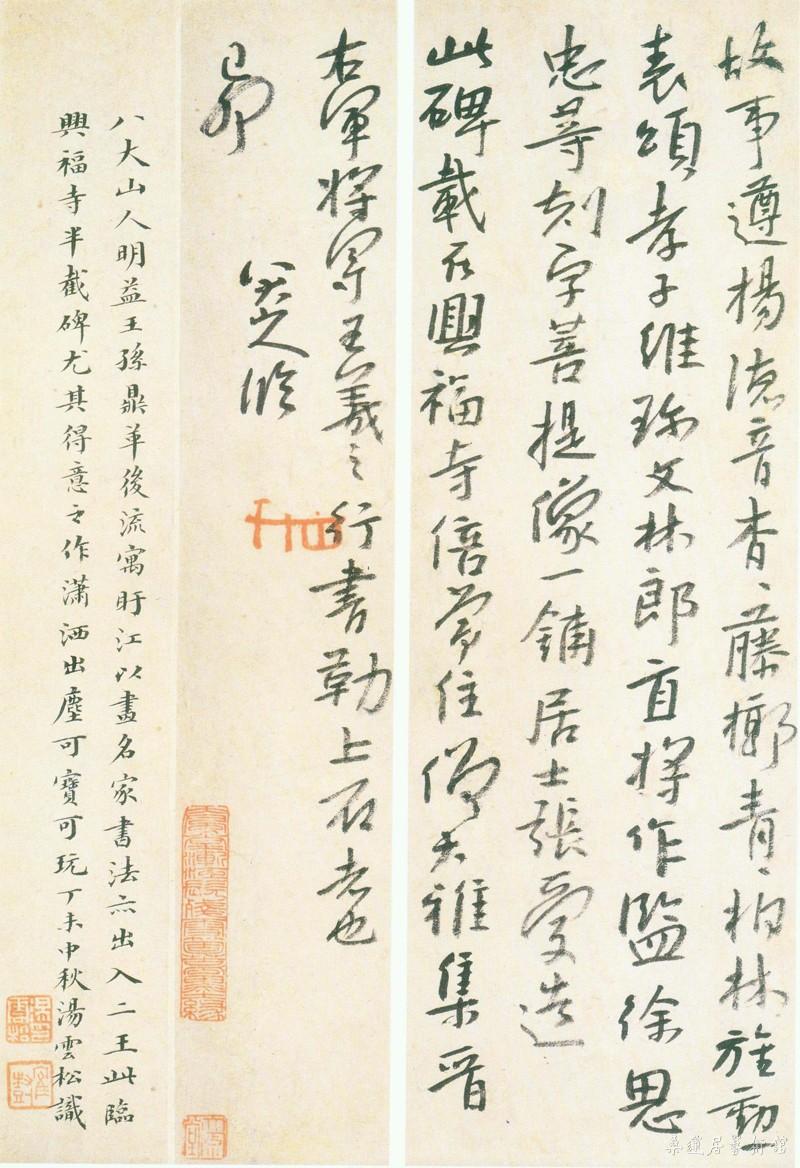 故事遵揚德音杳〻藤槨青〻柏林旌勳
表頌孝子維珎文林郎直將作監徐思
忠等刻字菩提像一鋪居士張愛造
此碑載在興福寺倍常住僧大雅集晉
右軍將軍王羲之行書勒上石者也
己卯
八大山人臨
八大山人明益王孫鼎革後流寓盱江以畫名家書法亦出入二王此臨
興福寺半截碑尤其得意之作瀟洒出塵可寶可玩丁未中秋湯雲松識
桑蓮居藝術館